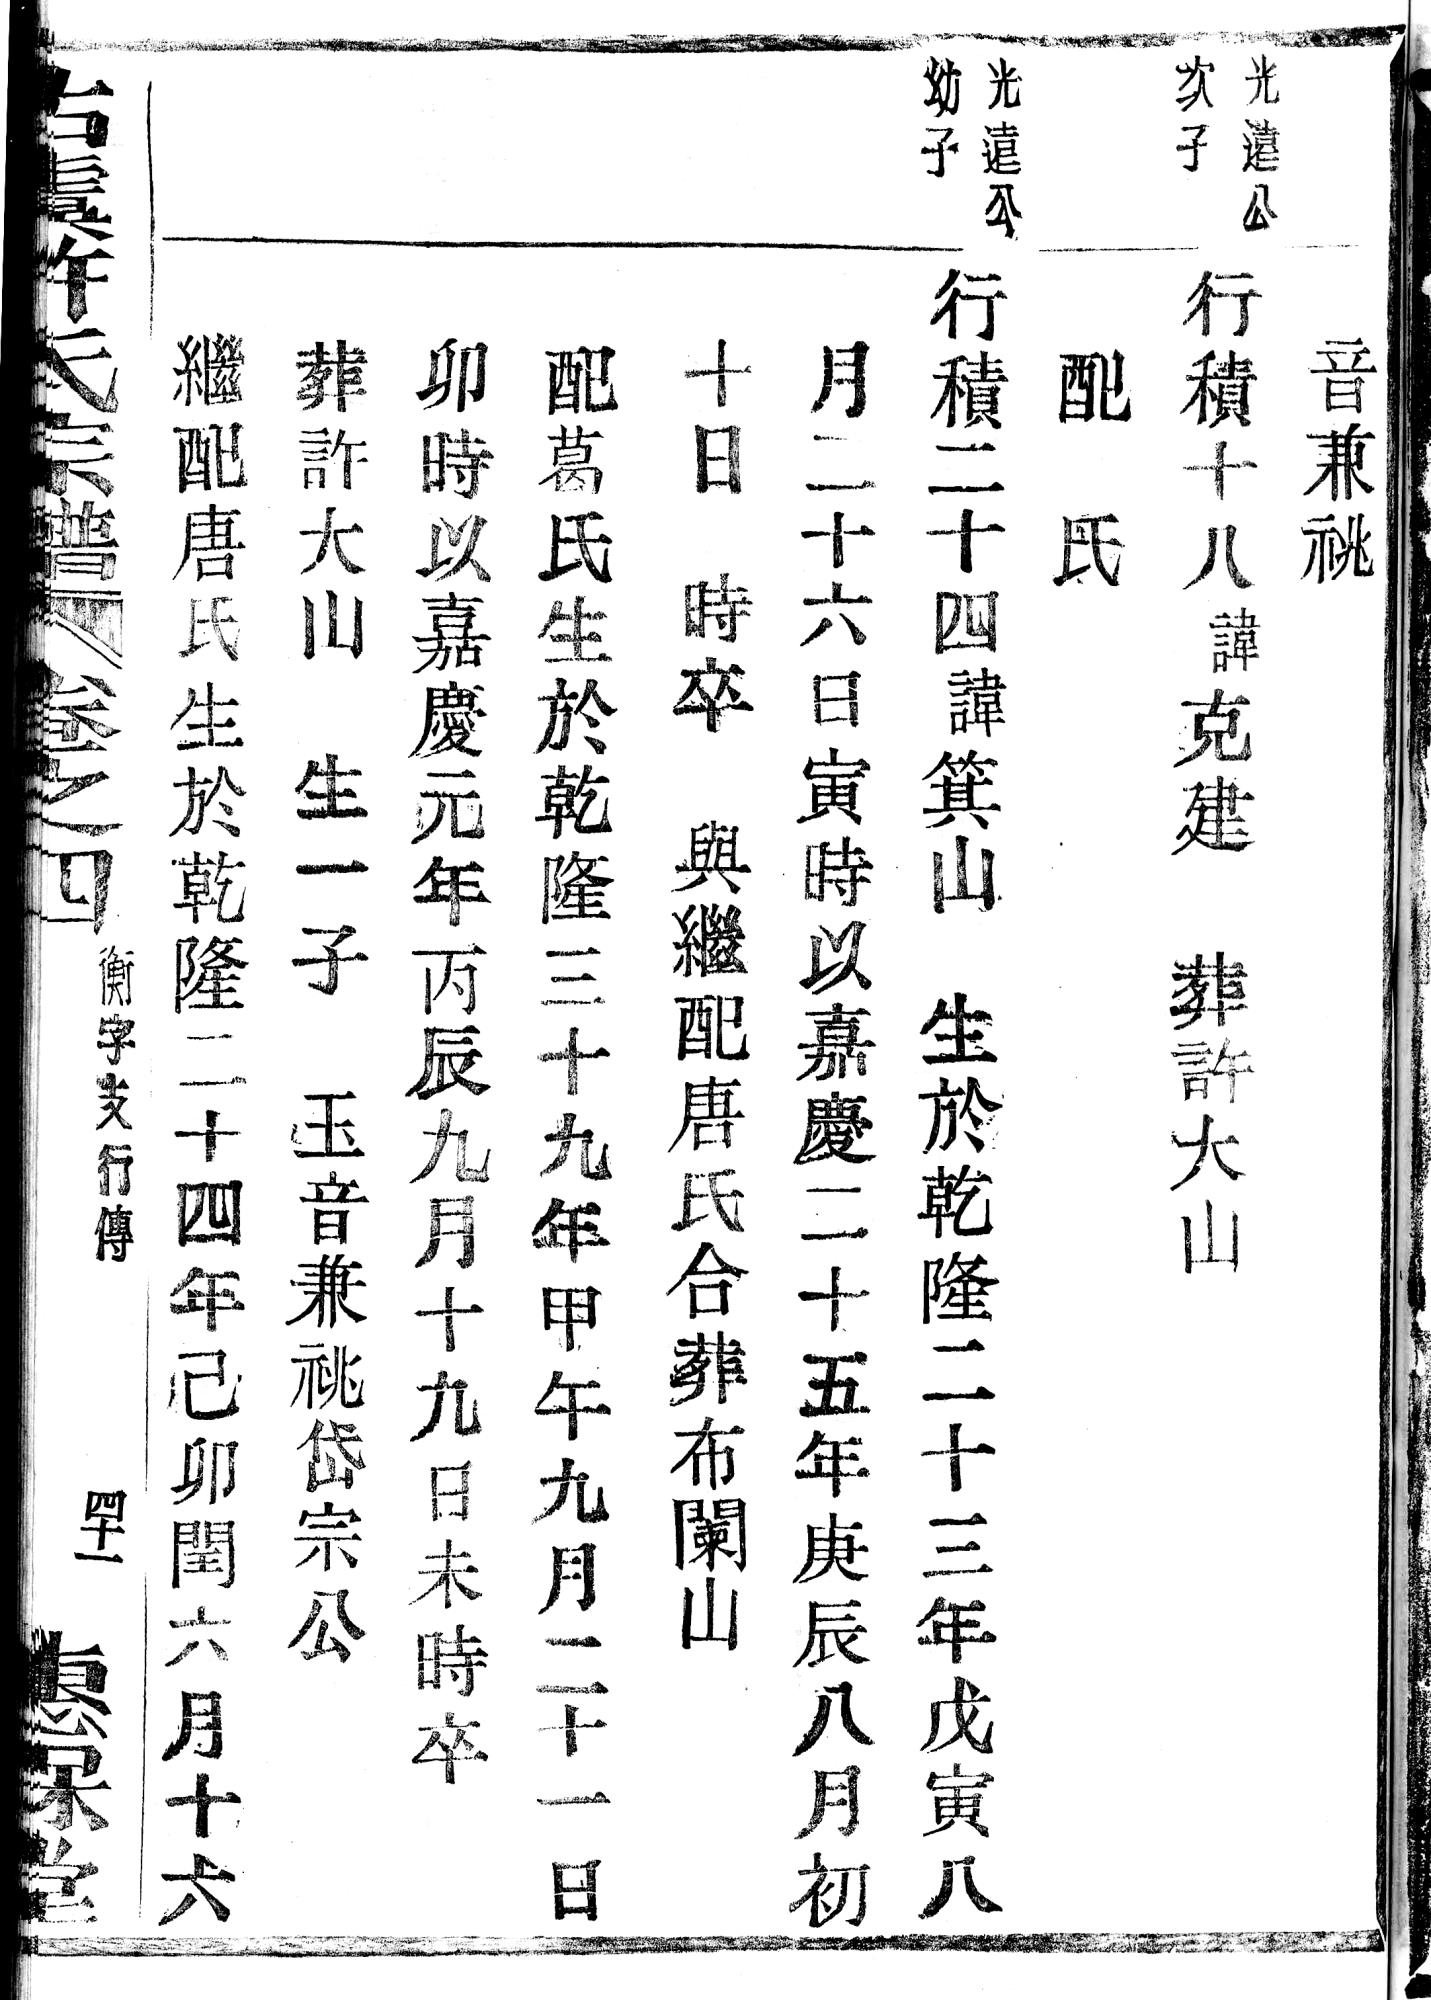 音兼祧
光遠公
次子
行積十八諱克建　葬許大山
配　氏
光遠公
幼子
行積二十四諱箕山　生於乾隆二十三年戊寅八
月二十六日寅時以嘉慶二十五年庚辰八月初
十日　時卒　與繼配唐氏合葬布闌山
配葛氏生於乾隆三十九年甲午九月二十一日
卯時以嘉慶元年丙辰九月十九日未時卒
葬許大山　生一子　玉音兼祧岱宗公
繼配唐氏生於乾隆二十四年己卯閏六月十六
古虞許氏宗譜　卷之四
衡字支行傳
四十一
堂